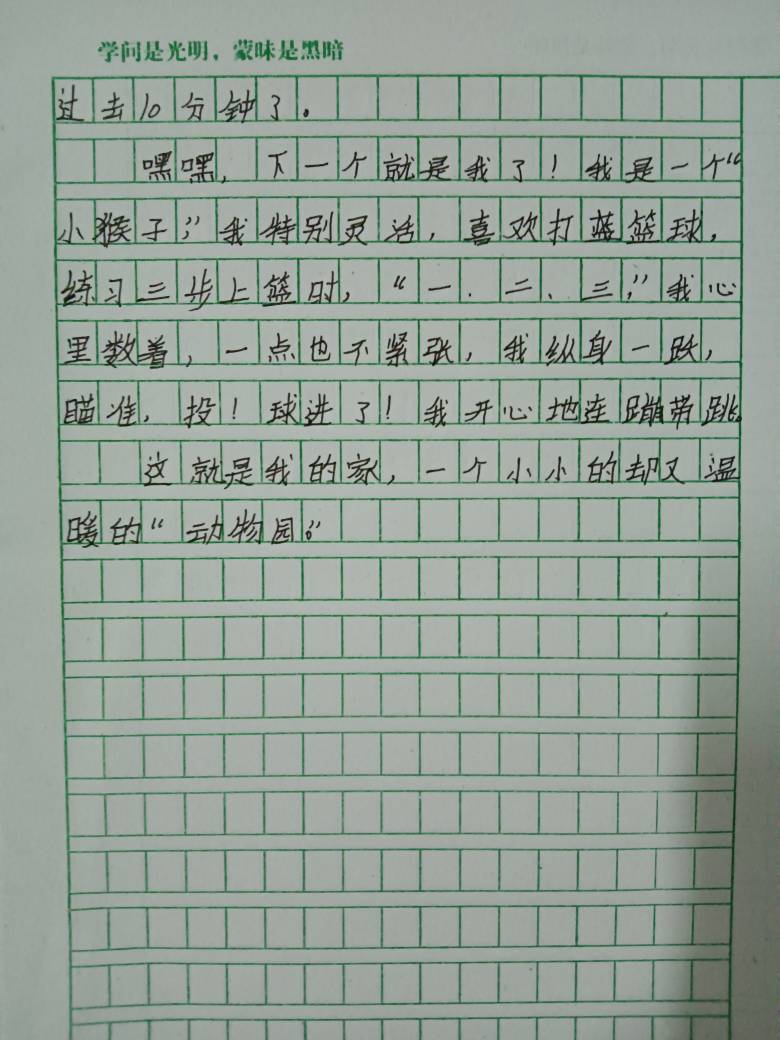 学问是光明，蒙昧是黑暗
过去10分钟了。
嘿嘿，下一个就是我了！我是一个“
小猴子”，我特别灵活，喜欢打蓝篮球，
练习三步上篮时，“一、二、三，”我心
里数着，一点也不紧张，我纵身一跃，
瞄准，投！球进了！我开心地连蹦带跳。
这就是我的家，一个小小的却又温
暖的“动物园。”